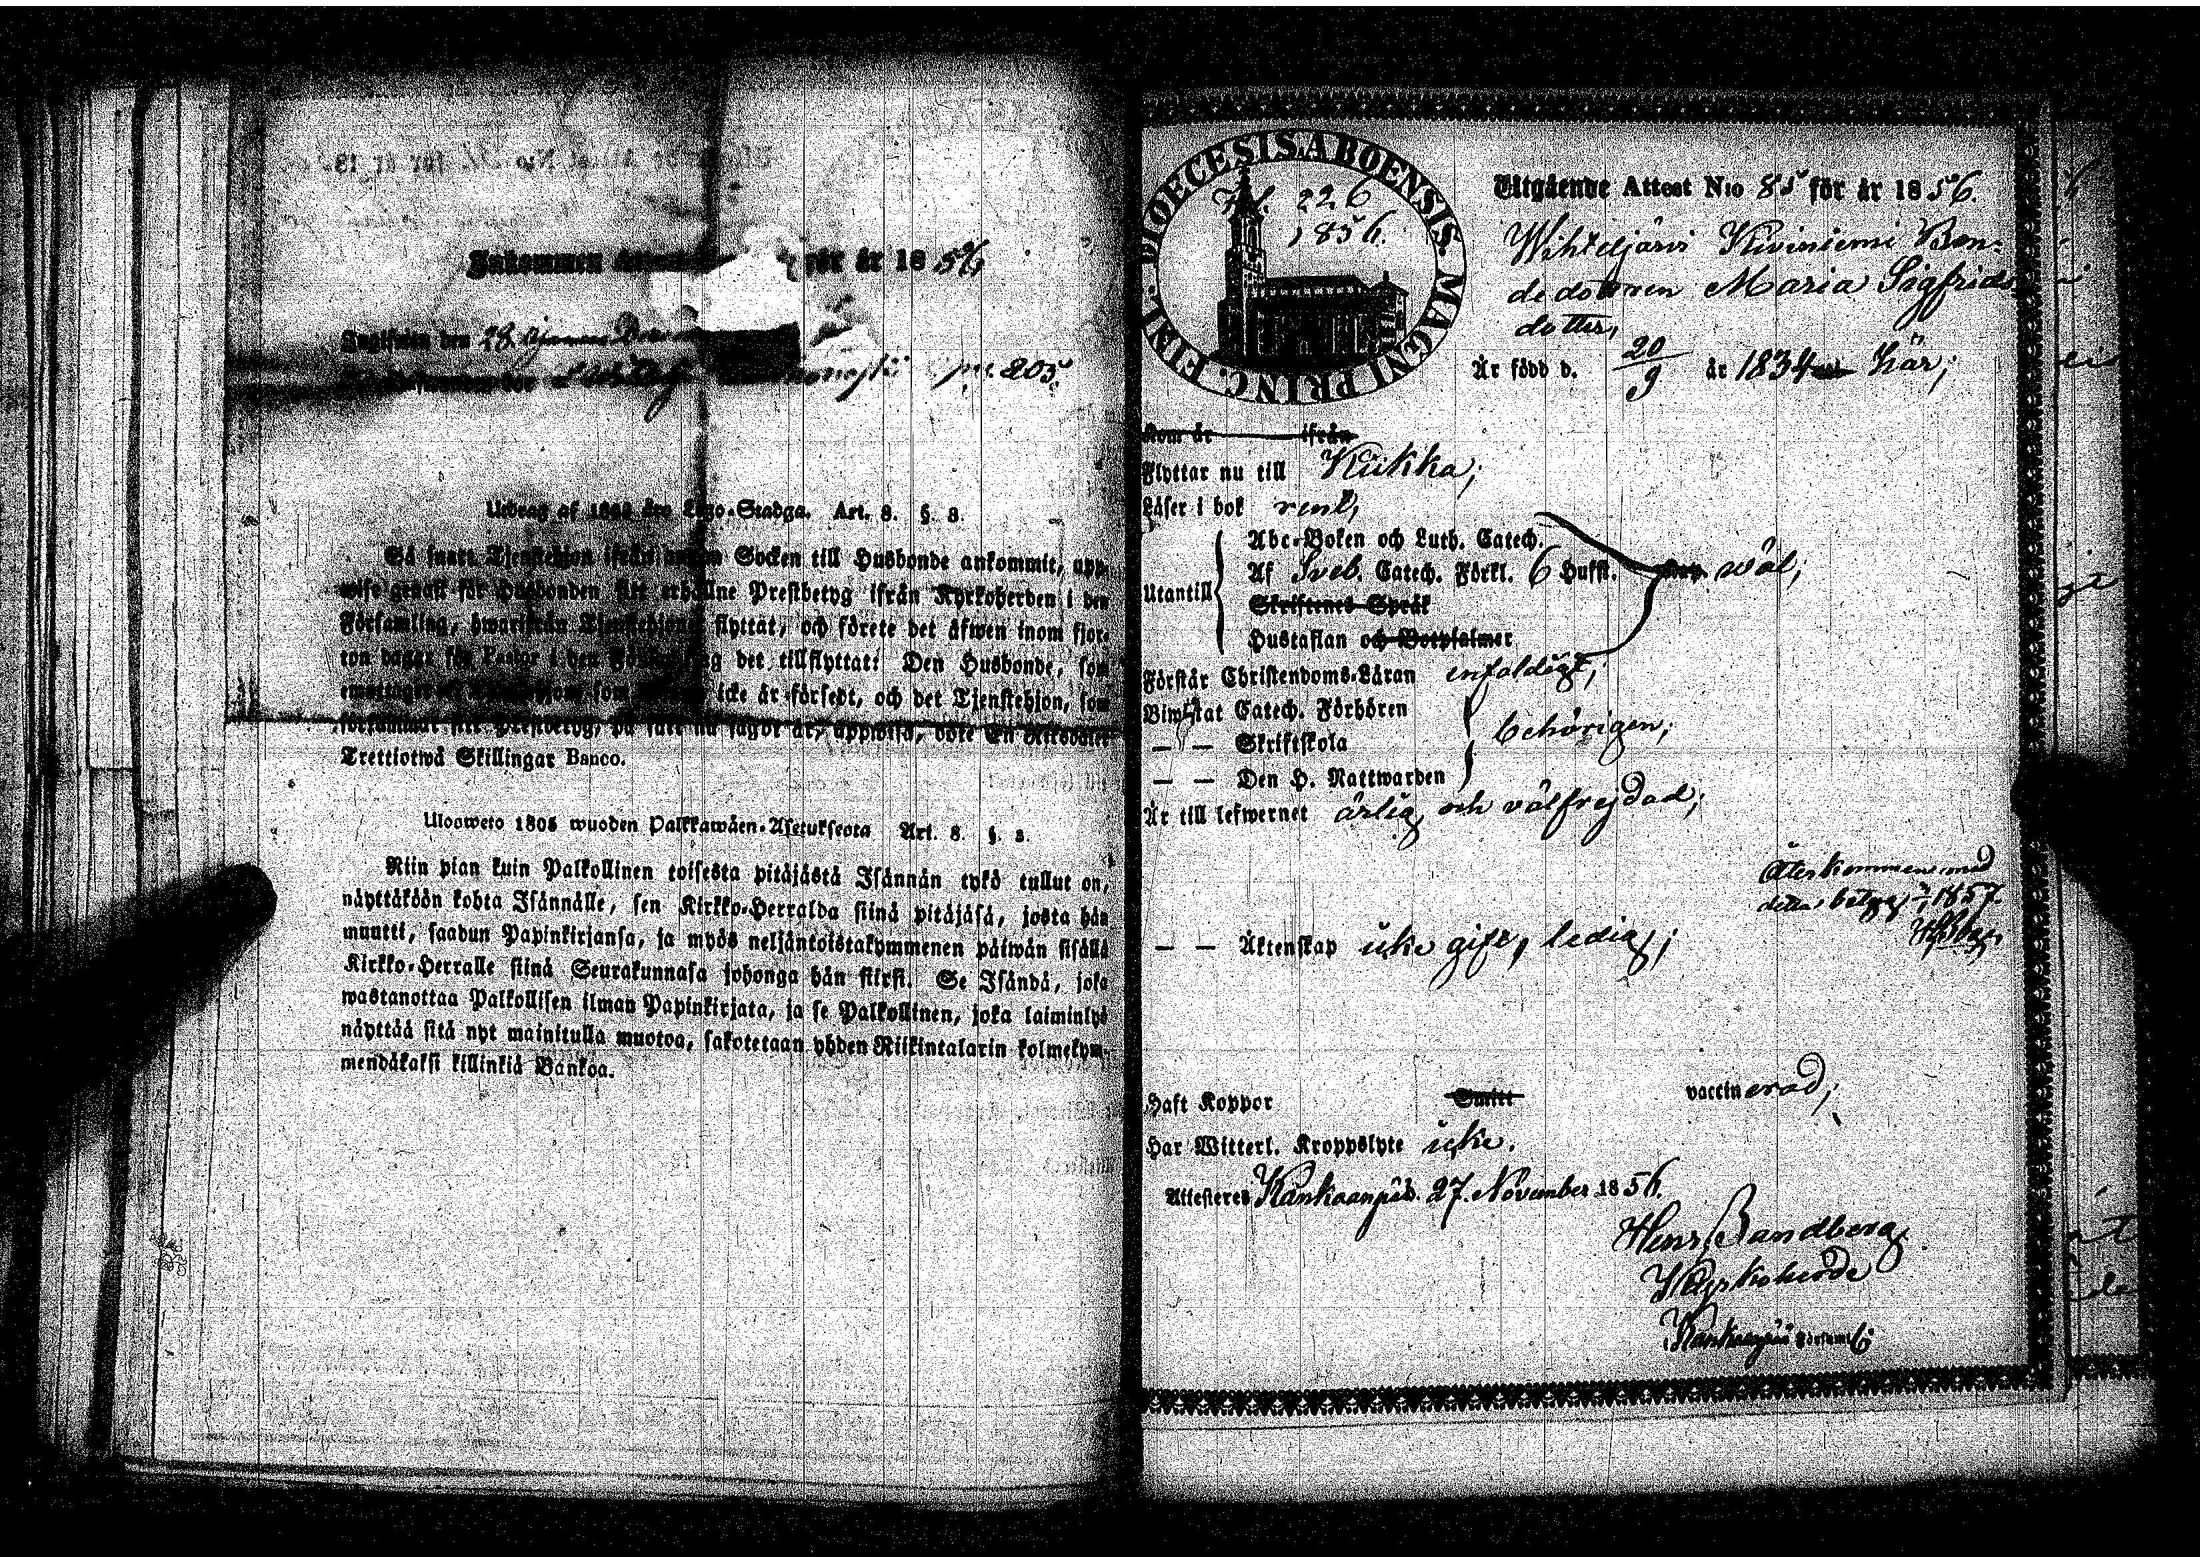 Inkommen för år 1856
Inskrifwen den 28.
205
Utdrag af 1805 års Lego-Stadga. Art. 8. §. 3.
Så snart Tjenstehjon ifrån annan Socken till Husbonde ankommit, upp-
wise genast för Husbonden sitt erhållne Prestbetyg ifrån Kyrkoherden i den
Församling, hwarifrån Tjenstehjonet flyttat, och förete det äfwen inom fjor-
ton dagar för Pastor i den Församling det tillflyttat: Den Husbonde, som
emottager ett Tjenstehjon, som icke är försedt, och det Tjenstehjon, som
försummat sitt Prestbetyg, på sätt nu sagdt är, uppwisa, böte En Riksdaler
Trettiotwå Skillingar Banco.
Ulosweto 1805 wuoden Palkkawäen-Asetuksesta Art. 8. §. 3.
Niin pian kuin Palkollinen toisesta pitäjästä Isännän tykö tullut on,
näyttäköön kohta Isännälle, sen Kirkko-Herralda siinä pitäjäsä, josta hän
muutti, saadun Papinkirjansa, ja myös neljäntoistakymmenen päiwän sisällä
Kirkko-Herralle siinä Seurakunnasa johonga hän siirsi. Se Isändä, joka
wastanottaa Palkollisen ilman Papinkirjata, ja se Palkollinen, joka laiminlyö
näyttää sitä nyt mainitulla muotoa, sakotetaan yhden Riikintalarin kolmekym-
mendäkaksi killinkiä Bankoa.
DIOECESIS ABOENSIS MAGNI PRINC. FINL.
226
1856.
Utgående Attest N:o 85 för år 1856.
Wihteljärvi Kiviniemi Bon-
dedottren Maria Sigfrids
dotter,
Är född d. 20/9 år 1834 här;
Kom år ifrån
Flyttar nu till Kiikka;
Läser i bok rent,
Utantill
Abc-Boken och Luth. Catech.
Af Sveb. Catech. Förkl. 6 Hufst. wäl;
Skriftenes Språk
Hustaflan och Botpsalmer
Förstår Christendoms-Läran enfaldigt;
Biwistat Catech. Förhören
— — Skriftskola behörigen;
— — Den H. Nattwarden
Är till lefwernet ärlig och välfrejdad;
Återkommen med
detta betyg 1857.
— — Äktenskap icke gift, ledig;
Haft Koppor Smitt vaccinerad;
Har Witterl. Kroppslyte icke.
Attesteres Kankaanpää. 27. November 1856.
Henr. Sandberg
Kyrkoherde
Kankaanpää Församl.